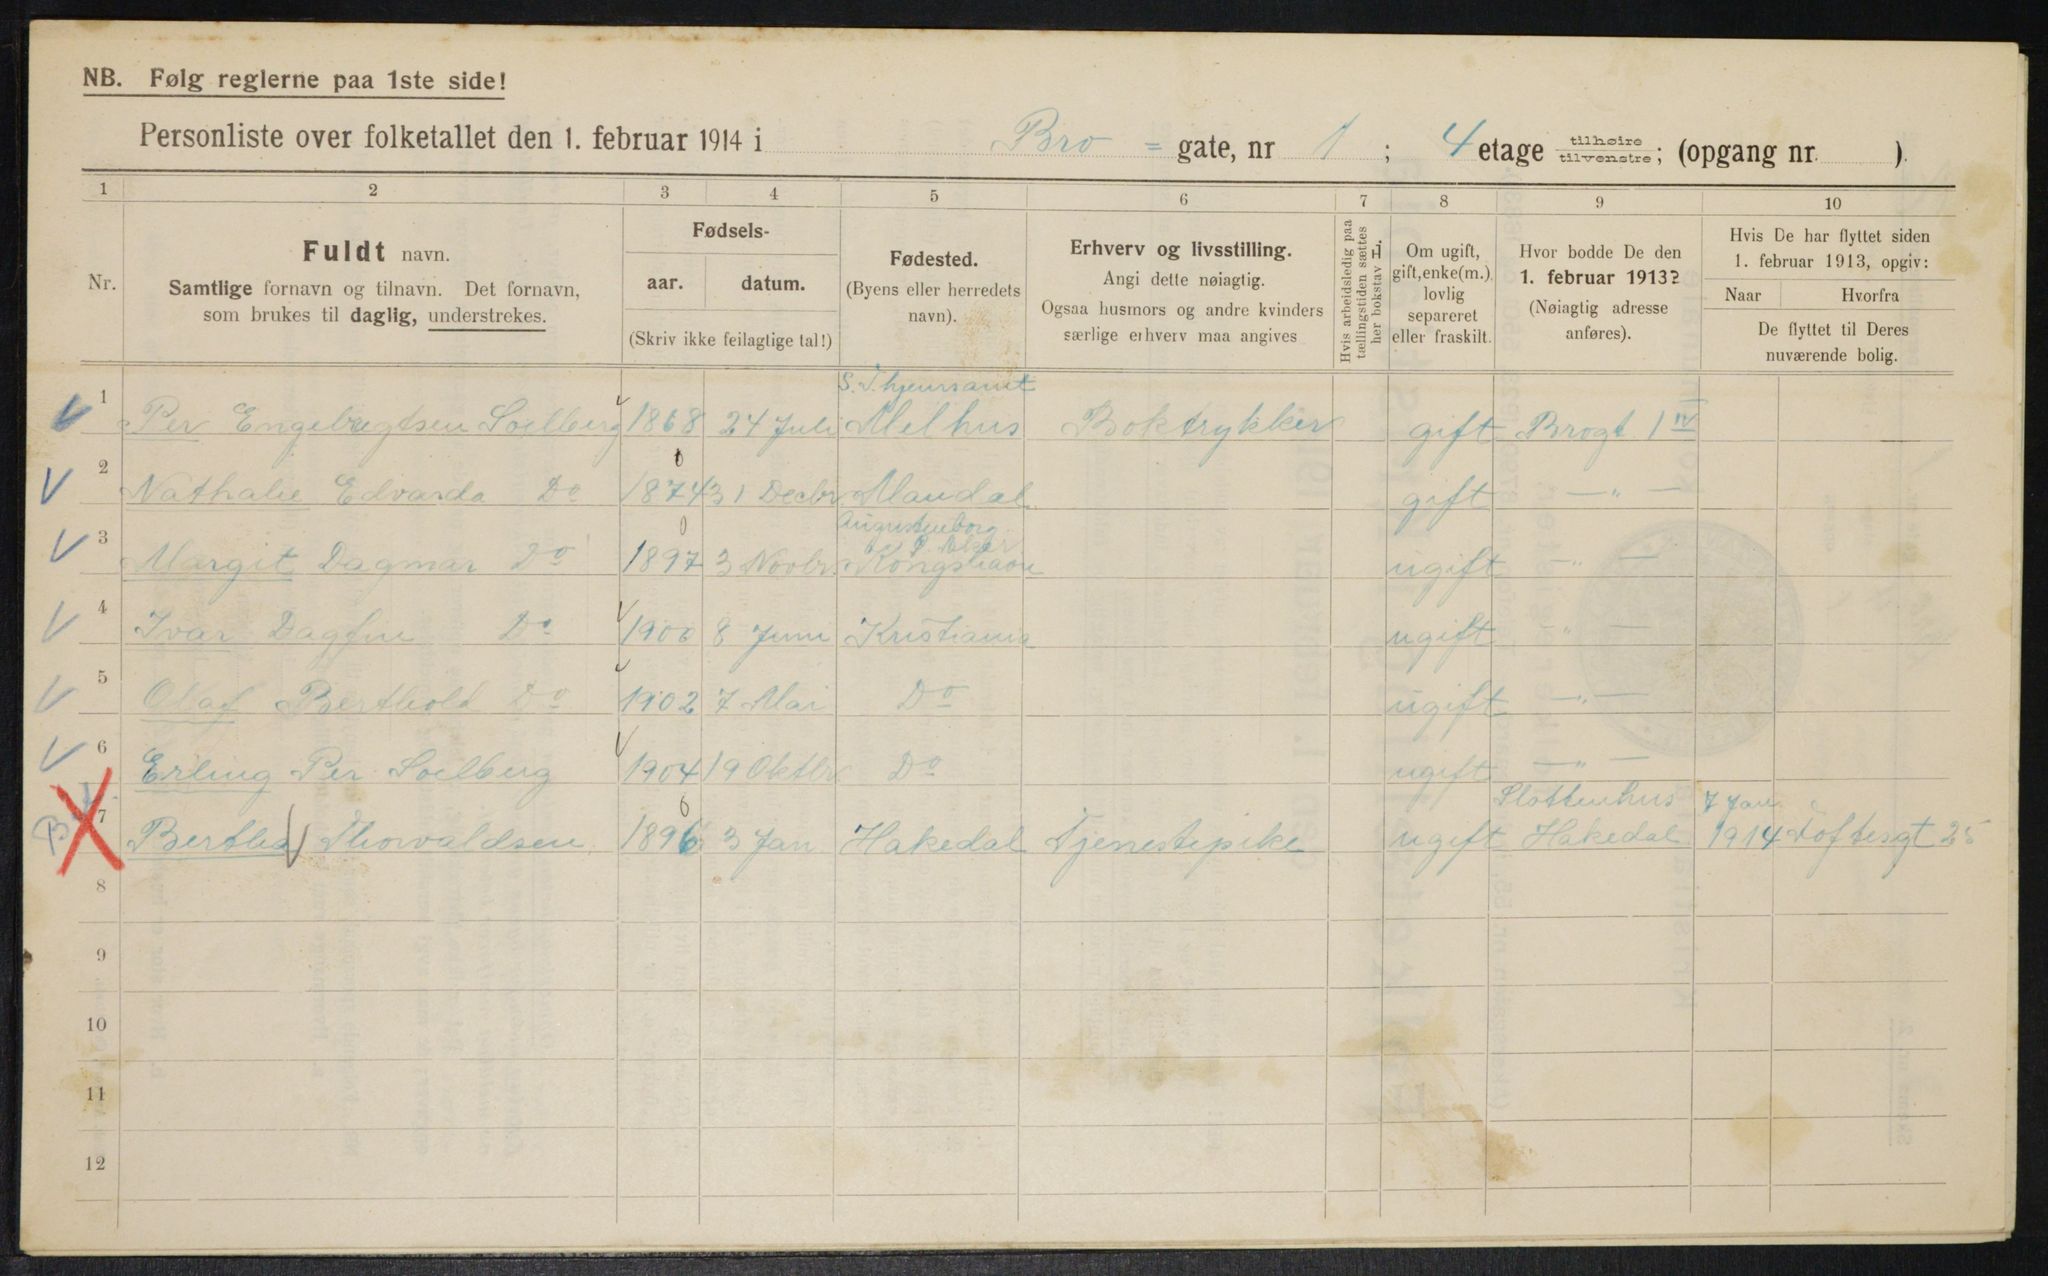 NB. Følg reglerne paa 1ste side!
Personliste over folketallet den 1. februar 1914 i Bro = gate, nr 1 ; 4 etage tilhøire / tilvenstre ; (opgang nr. ).
1 2 3 4 5 6 7 8 9 10
Nr.
Fuldt navn.
Samtlige fornavn og tilnavn. Det fornavn,
som brukes til daglig, understrekes.
Fødsels-
aar. datum.
(Skriv ikke feilagtige tal!)
Fødested.
(Byens eller herredets
navn).
Erhverv og livsstilling.
Angi dette nøiagtig.
Ogsaa husmors og andre kvinders
særlige erhverv maa angives
Hvis arbeidsledig paa
tællingstiden sættes
her bokstav L.
Om ugift,
gift, enke(m.)
lovlig
separeret
eller fraskilt.
Hvor bodde De den
1. februar 1913?
(Nøiagtig adresse
anføres).
Hvis De har flyttet siden
1. februar 1913, opgiv:
Naar Hvorfra
De flyttet til Deres
nuværende bolig.
S. Thjemsamt
1 Per Engebregtsen Soelberg 1868 24 Juli Melhus Boktrykker gift Brogt 1 IV
2 Nathalie Edvarda Do 1874 31 Decbr Mandal gift — " —
Augustenborg
3 Margit Dagmar Do 1897 3 Novbr ugift — " —
4 Ivar Dagfin Do 1900 8 Juni Kristiania ugift — " —
5 Olaf Berthold Do 1902 7 Mai Do ugift — " —
6 Erling Per Soelberg 1904 19 Oktbr Do ugift — " —
Slottenhus 7 Jan
7 Berthea Thorvaldsen 1896 3 Jan Hakedal Tjenestepike ugift Hakedal 1914 Toftesgt 25
8
9
10
11
12